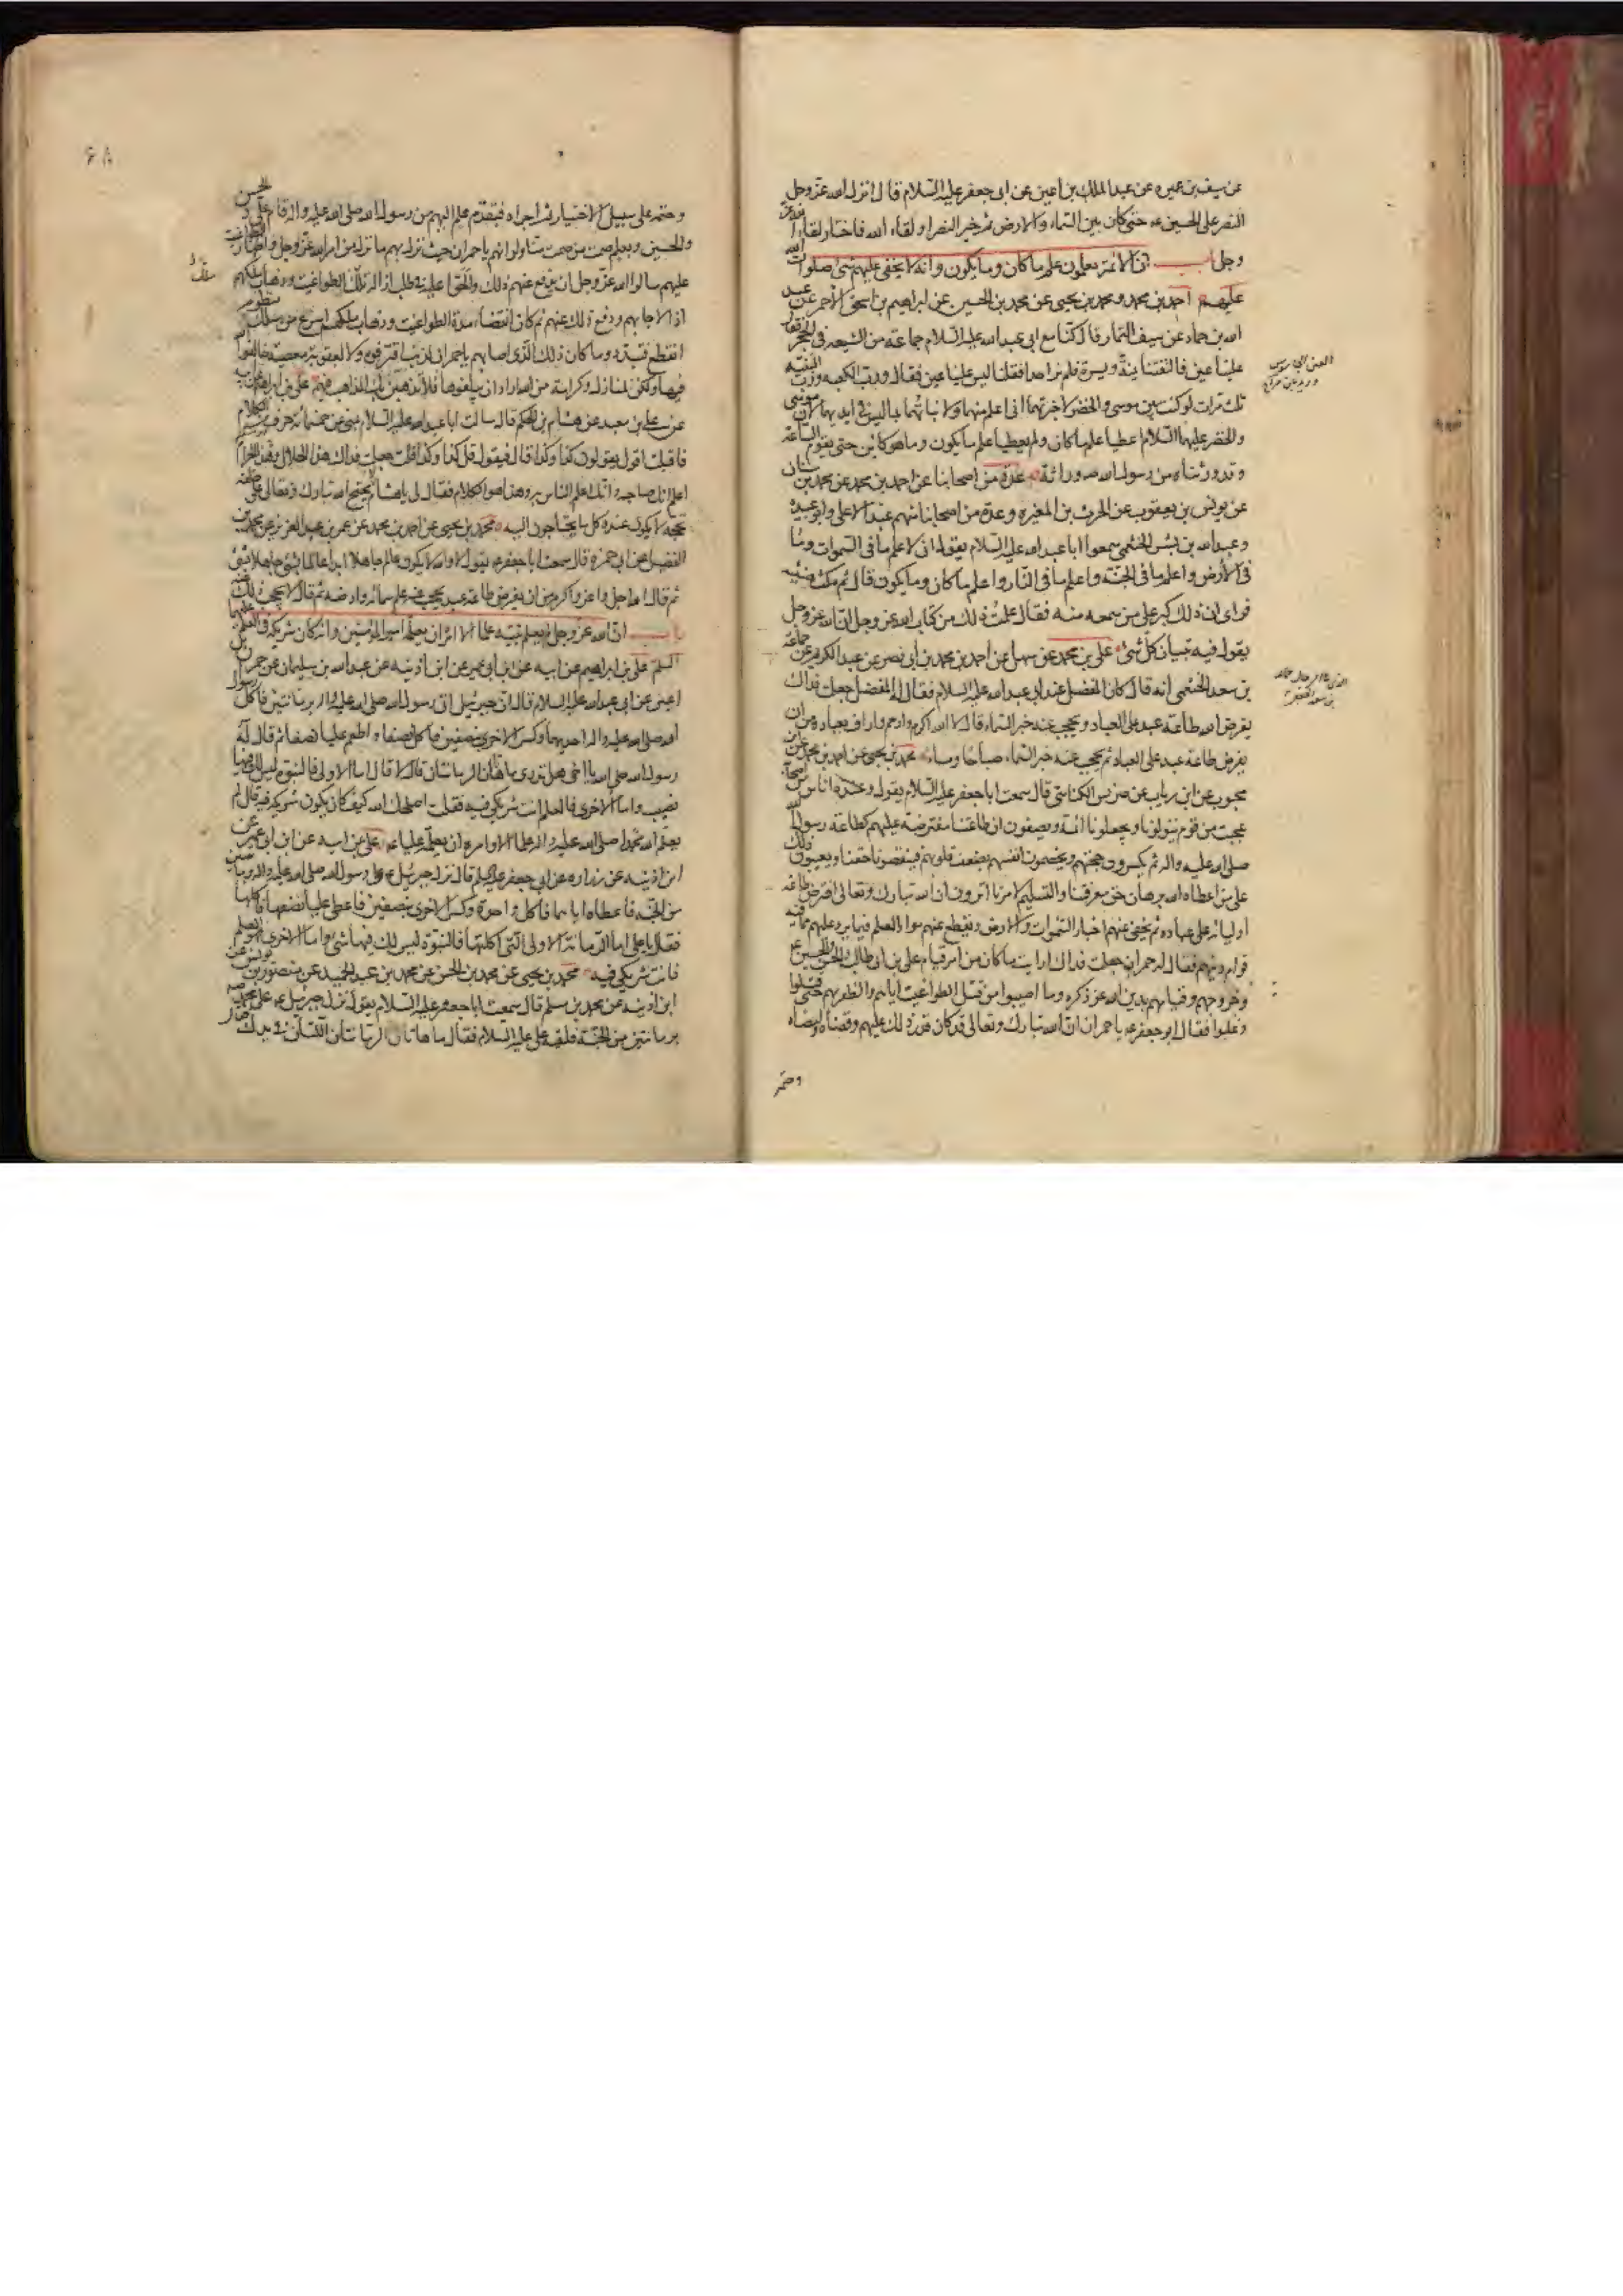 عن سيف بن عميره عن عبد الملك بن اعين عن ابى جعفر عليه السلام قال انزل الله عز وجل
النصر على الحسين عه حتى كان بين السماء والارض ثم خير النصر او لقاء الله فاختار لقاء الله عز
وجل باب ان الائمة يعلمون علم ما كان وما يكون وانه لا يخفى عليهم شئ صلوات الله
عليهم احمد بن محمد ومحمد بن يحيى عن محمد بن الحسين عن ابراهيم بن اسحق الاحمر عن عبد
الله بن حماد عن سيف التمار قال كنا مع ابى عبد الله عليه السلام جماعة من الشيعه فى الحجر فقال
علينا عين فالتفتنا يمنة ويسرة فلم نر احدا فقلنا ليس علينا عين فقال ورب الكعبه ورب البنيّة
ثلث مرات لو كنت بين موسى والخضر لاخبرتهما انى اعلم منهما ولانباتهما بما ليس فى ايديهما لان موسى
والخضر عليهما السلام اعطيا علم ما كان ولم يعطيا علم ما يكون وما هو كائن حتى يقوم الساعة
وقد ورثناه من رسول الله صه وراثة عدة من اصحابنا عن احمد بن محمد عن محمد بن سنان
عن يونس بن يعقوب عن الحرث بن المغيره وعدة من اصحابنا منهم عبد الاعلى وابو عبيدة
وعبد الله بن بشر الخثعمى سمعوا ابا عبد الله عليه السلام يقول انى لاعلم ما فى السموات وما
فى الارض واعلم ما فى الجنة واعلم ما فى النار واعلم ما كان وما يكون قال ثم مكث هنيئه
فراى ان ذلك كبر على من سمعه منه فقال علمت ذلك من كتاب الله عز وجل ان الله عز وجل
يقول فيه تبيان كل شئ على بن محمد عن سهل عن احمد بن محمد بن ابى نصر عن عبد الكريم عن جماعة
بن سعد الخثعمى انه قال كان المفضل عند ابى عبد الله عليه السلام فقال له المفضل جعلت فداك
يفرض الله طاعة عبد على العباد ويحجب عنه خبر السماء قال لا الله اكرم وارحم واراف بعباده من ان
يفرض طاعة عبد على العباد ثم يحجب عنه خبر السماء صباحا ومساء محمد بن يحيى عن احمد بن محمد عن ابن
محبوب عن ابن رياب عن ضريس الكناسى قال سمعت ابا جعفر عليه السلام يقول وعنده اناس من اصحابه
عجبت من قوم يتولونا ويجعلونا ائمة ويصفون ان طاعتنا مفترضه عليهم كطاعة رسول الله
صلى الله عليه واله ثم يكسرون حجتهم ويخصمون انفسهم بضعف قلوبهم فينقصونا حقنا ويعيبون ذلك
على من اعطاه الله برهان حق معرفتنا والتسليم لامرنا اترون ان الله تبارك وتعالى افترض طاعة
اوليائه على عباده ثم يخفى عنهم اخبار السموات والارض ويقطع عنهم مواد العلم فيما يرد عليهم مما فيه
قوام دينهم فقال له حمران جعلت فداك ارايت ما كان من امر قيام على بن ابى طالب والحسن والحسين ع
وخروجهم وقيامهم بدين الله عز ذكره وما اصيبوا من قتل الطواغيت اياهم والظفر بهم حتى قتلوا
وغلبوا فقال ابو جعفر عه يا حمران ان الله تبارك وتعالى قد كان قدر ذلك عليهم وقضاه وامضاه
وحتمه
۶۸
وحتمه على سبيل الاختيار ثم اجراه فبتقدم علم اليهم من رسول الله صلى الله عليه واله قام على والحسن
والحسين وبعلم صمت من صمت منا ولو انهم يا حمران حيث نزل بهم ما نزل من امر الله عز وجل واظهار الطواغيت
عليهم سالوا الله عز وجل ان يدفع عنهم ذلك والحوا عليه فى طلب ازالة تلك الطواغيت وذهاب ملكهم
اذا لاجابهم ودفع ذلك عنهم ثم كان انقضاء مدة الطواغيت وذهاب ملكهم اسرع من سلك منظوم
انقطع فتبدد وما كان ذلك الذى اصابهم يا حمران لذنب اقترفوه ولا لعقوبة معصية خالفوا الله
فيها ولكن لمنازل وكرامة من الله اراد ان يبلغوها فلا تذهبن بك المذاهب فيهم على بن ابراهيم عن ابيه
عن على بن معبد عن هشام بن الحكم قال سالت ابا عبد الله عليه السلام بمنى عن خمسمائة حرف من الكلام
فاقبلت اقول يقولون كذا وكذا قال فيقول قل كذا وكذا قلت جعلت فداك هذا الحلال وهذا الحرام
اعلم انك صاحبه وانك اعلم الناس به وهذا هو الكلام فقال لى يا هشام يحتج الله تبارك وتعالى على خلقه
بحجه لا يكون عنده كل ما يحتاجون اليه محمد بن يحيى عن احمد بن محمد عن عمر بن عبد العزيز عن محمد بن
الفضيل عن ابى حمزه قال سمعت ابا جعفر عه يقول لا والله لا يكون عالم جاهلا ابدا عالما بشئ جاهلا بشئ
ثم قال الله اجل واعز واكرم من ان يفرض طاعة عبد يحجب عنه علم سمائه وارضه ثم قال لا يحجب ذلك عنه
باب ان الله عز وجل لم يعلم نبيه علما الا امره ان يعلمه امير المؤمنين وانه كان شريكه فى العلم عليهما
السلم على بن ابراهيم عن ابيه عن ابن ابى عمير عن ابن اذينه عن عبد الله بن سليمان عن حمران بن
اعين عن ابى عبد الله عليه السلام قال ان جبرئيل اتى رسول الله صلى الله عليه واله برمانتين فاكل رسول
الله صلى الله عليه واله احديهما وكسر الاخرى بنصفين فاكل نصفا واطعم عليا نصفا ثم قال له
رسول الله صلى الله يا اخى هل تدرى ما هاتان الرمانتان قال لا قال اما الاولى فالنبوة ليس لك فيها
نصيب واما الاخرى فالعلم انت شريكى فيه فقلت اصلحك الله كيف كان يكون شريكه فيه قال لم
يعلم الله محمدا صلى الله عليه واله علما الا وامره ان يعلمه عليا عه على عن ابيه عن ابن ابى عمير عن
ابن اذينه عن زراره عن ابى جعفر عليه السلم قال نزل جبرئيل عه على رسول الله صلى الله عليه واله برمانتين
من الجنة فاعطاه اياهما فاكل واحدة وكسر الاخرى بنصفين فاعطى عليا نصفها فاكلها
فقال يا على اما الرمانة الاولى التى اكلتها فالنبوة ليس لك فيها شئ واما الاخرى فهو العلم
فانت شريكى فيه محمد بن يحيى عن محمد بن الحسن عن محمد بن عبد الحميد عن منصور بن يونس عن
ابن اذينه عن محمد بن مسلم قال سمعت ابا جعفر عليه السلام يقول نزل جبرئيل عه على محمد صه
برمانتين من الجنة فلقيه على عليه السلام فقال ما هاتان الرمانتان اللتان فى يدك